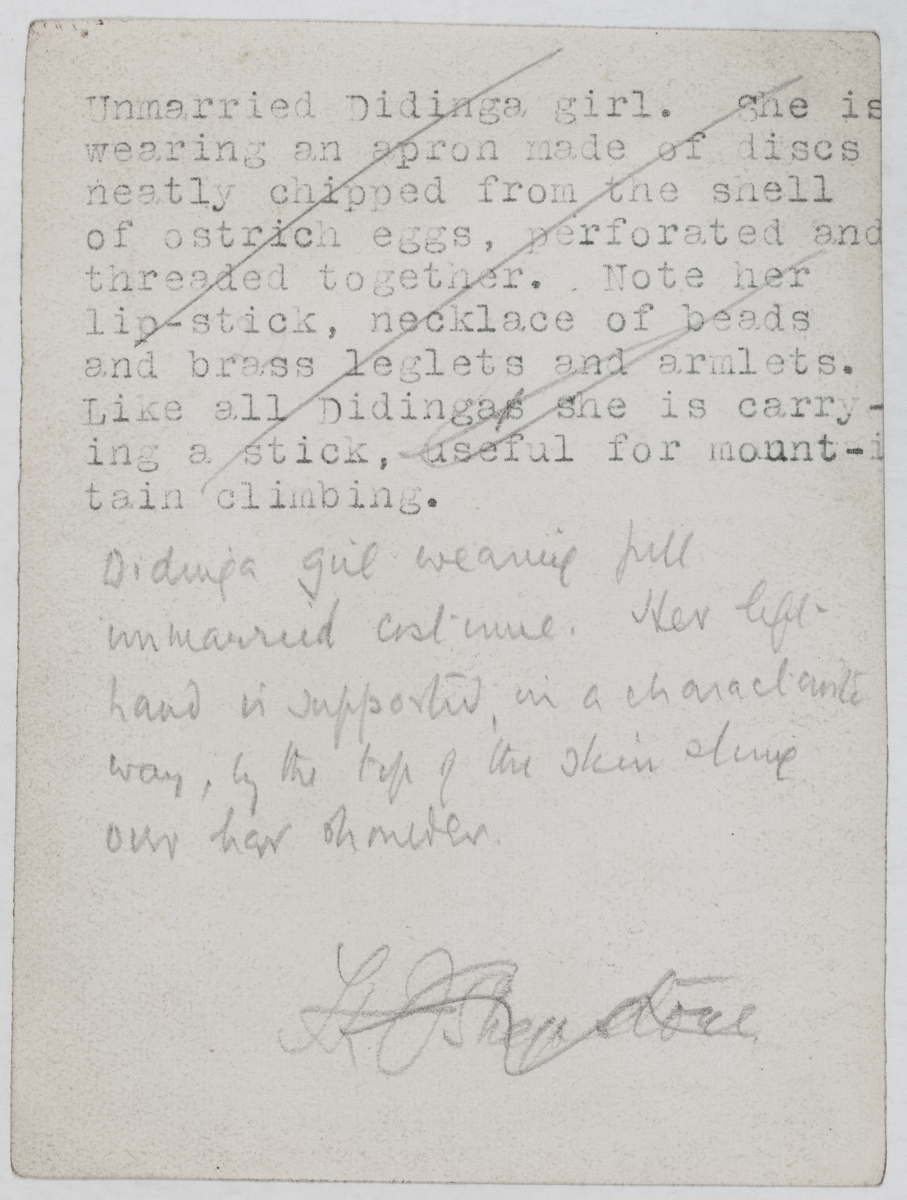 Unmarried Didinga girl. She is
wearing an apron made of discs
neatly chipped from the shell
of ostrich eggs, perforated and
threaded together. Note her
lip-stick, necklace of beads
and brass leglets and armlets.
Like all Didingas she is carry-
ing a stick, useful for mount-i
tain climbing.
Didinga girl wearing full
unmarried costume. Her left
hand is supported, in a characteristic
way, by the top of the skin slung
over her shoulder.
Shepstone